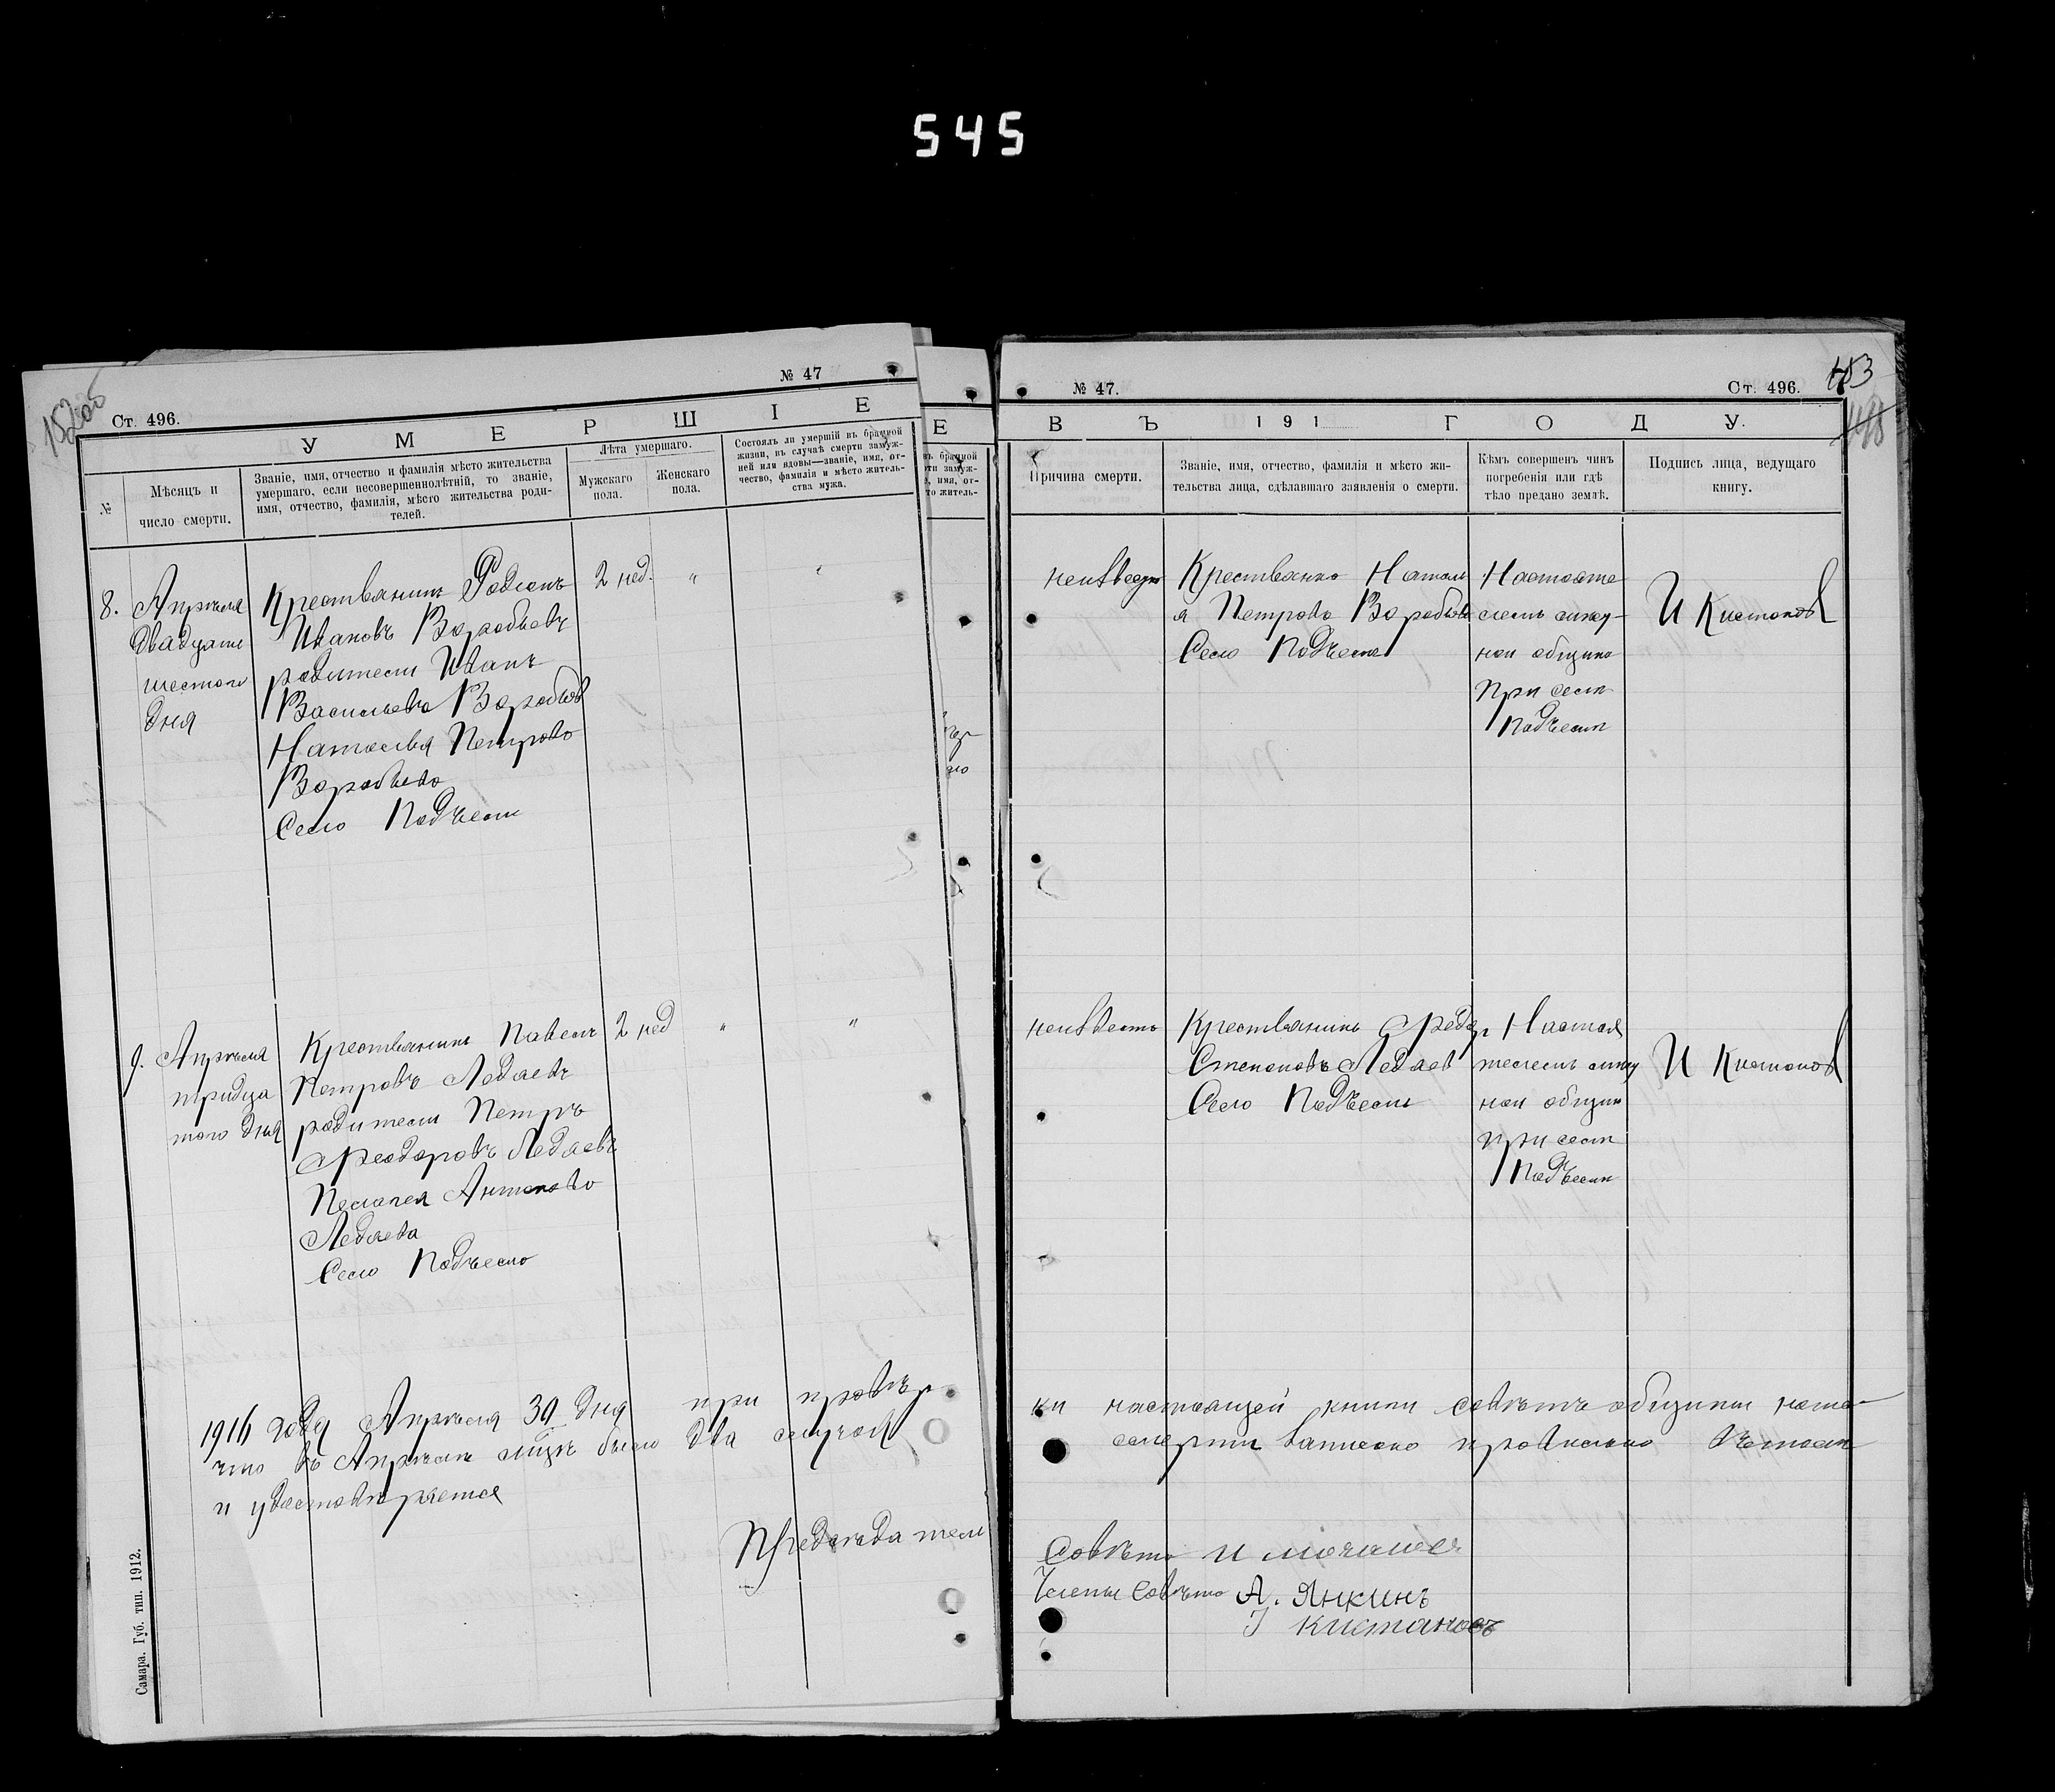 545
182об
№ 47
Ст. 496.
У М Е Р Ш І Е
№
Мѣсяцъ и
число смерти.
Званіе, имя, отчество и фамилія мѣсто жительства
умершаго, если несовершеннолѣтній, то званіе,
имя, отчество, фамилія, мѣсто жительства роди-
телей.
Лѣта умершаго.
Мужскаго
пола.
Женскаго
пола.
Состоялъ ли умершій въ брачной
жизни, въ случаѣ смерти замуж-
ней или вдовы—званіе, имя, от-
чество, фамилія и мѣсто житель-
ства мужа.
8.
Апрѣля
двадцати
шестого
дня
Крестьянинъ Родіонъ
Ивановъ Воробьевъ
родители Иванъ
Васильевъ Воробьев
Наталья Петрова
Воробьева
Село Подъеми
2 нед.
"
"
9.
Апрѣля
тридца
того дня
Крестьянинъ Павелъ
Петровъ Ледяевъ
родители Петръ
Феодоровъ Ледяевъ
Пелагея Антонова
Ледяева
Село
2 нед
"
"
1916 года Апрѣля 30 дня при провѣр
что въ Апрѣлѣ мцѣ было два случая
и удостовѣряется
Предсѣдатель
Самара. Губ. тип. 1912.
Е
№ 47.
Ст. 496.
183
В Ъ 1 9 1 Г О Д У.
Причина смерти.
Званіе, имя, отчество, фамилія и мѣсто жи-
тельства лица, сдѣлавшаго заявленія о смерти.
Кѣмъ совершенъ чинъ
погребенія или гдѣ
тѣло предано землѣ.
Подпись лица, ведущаго
книгу.
Крестьянка Натали
я Петрова Воробьева
Село
Настояте
лемъ
ной общины
при селѣ
И Кистанов
неизвестн
Крестьянинъ Федор
Степановъ Ледяев
Село
Настоя
телемъ
ной общин
при селѣ
И Кистанов
ки настоящей книги совѣтъ общины наше
смерти записано правильно
Совѣта И
Члены Совѣта А. Янкинъ
І Кистановъ